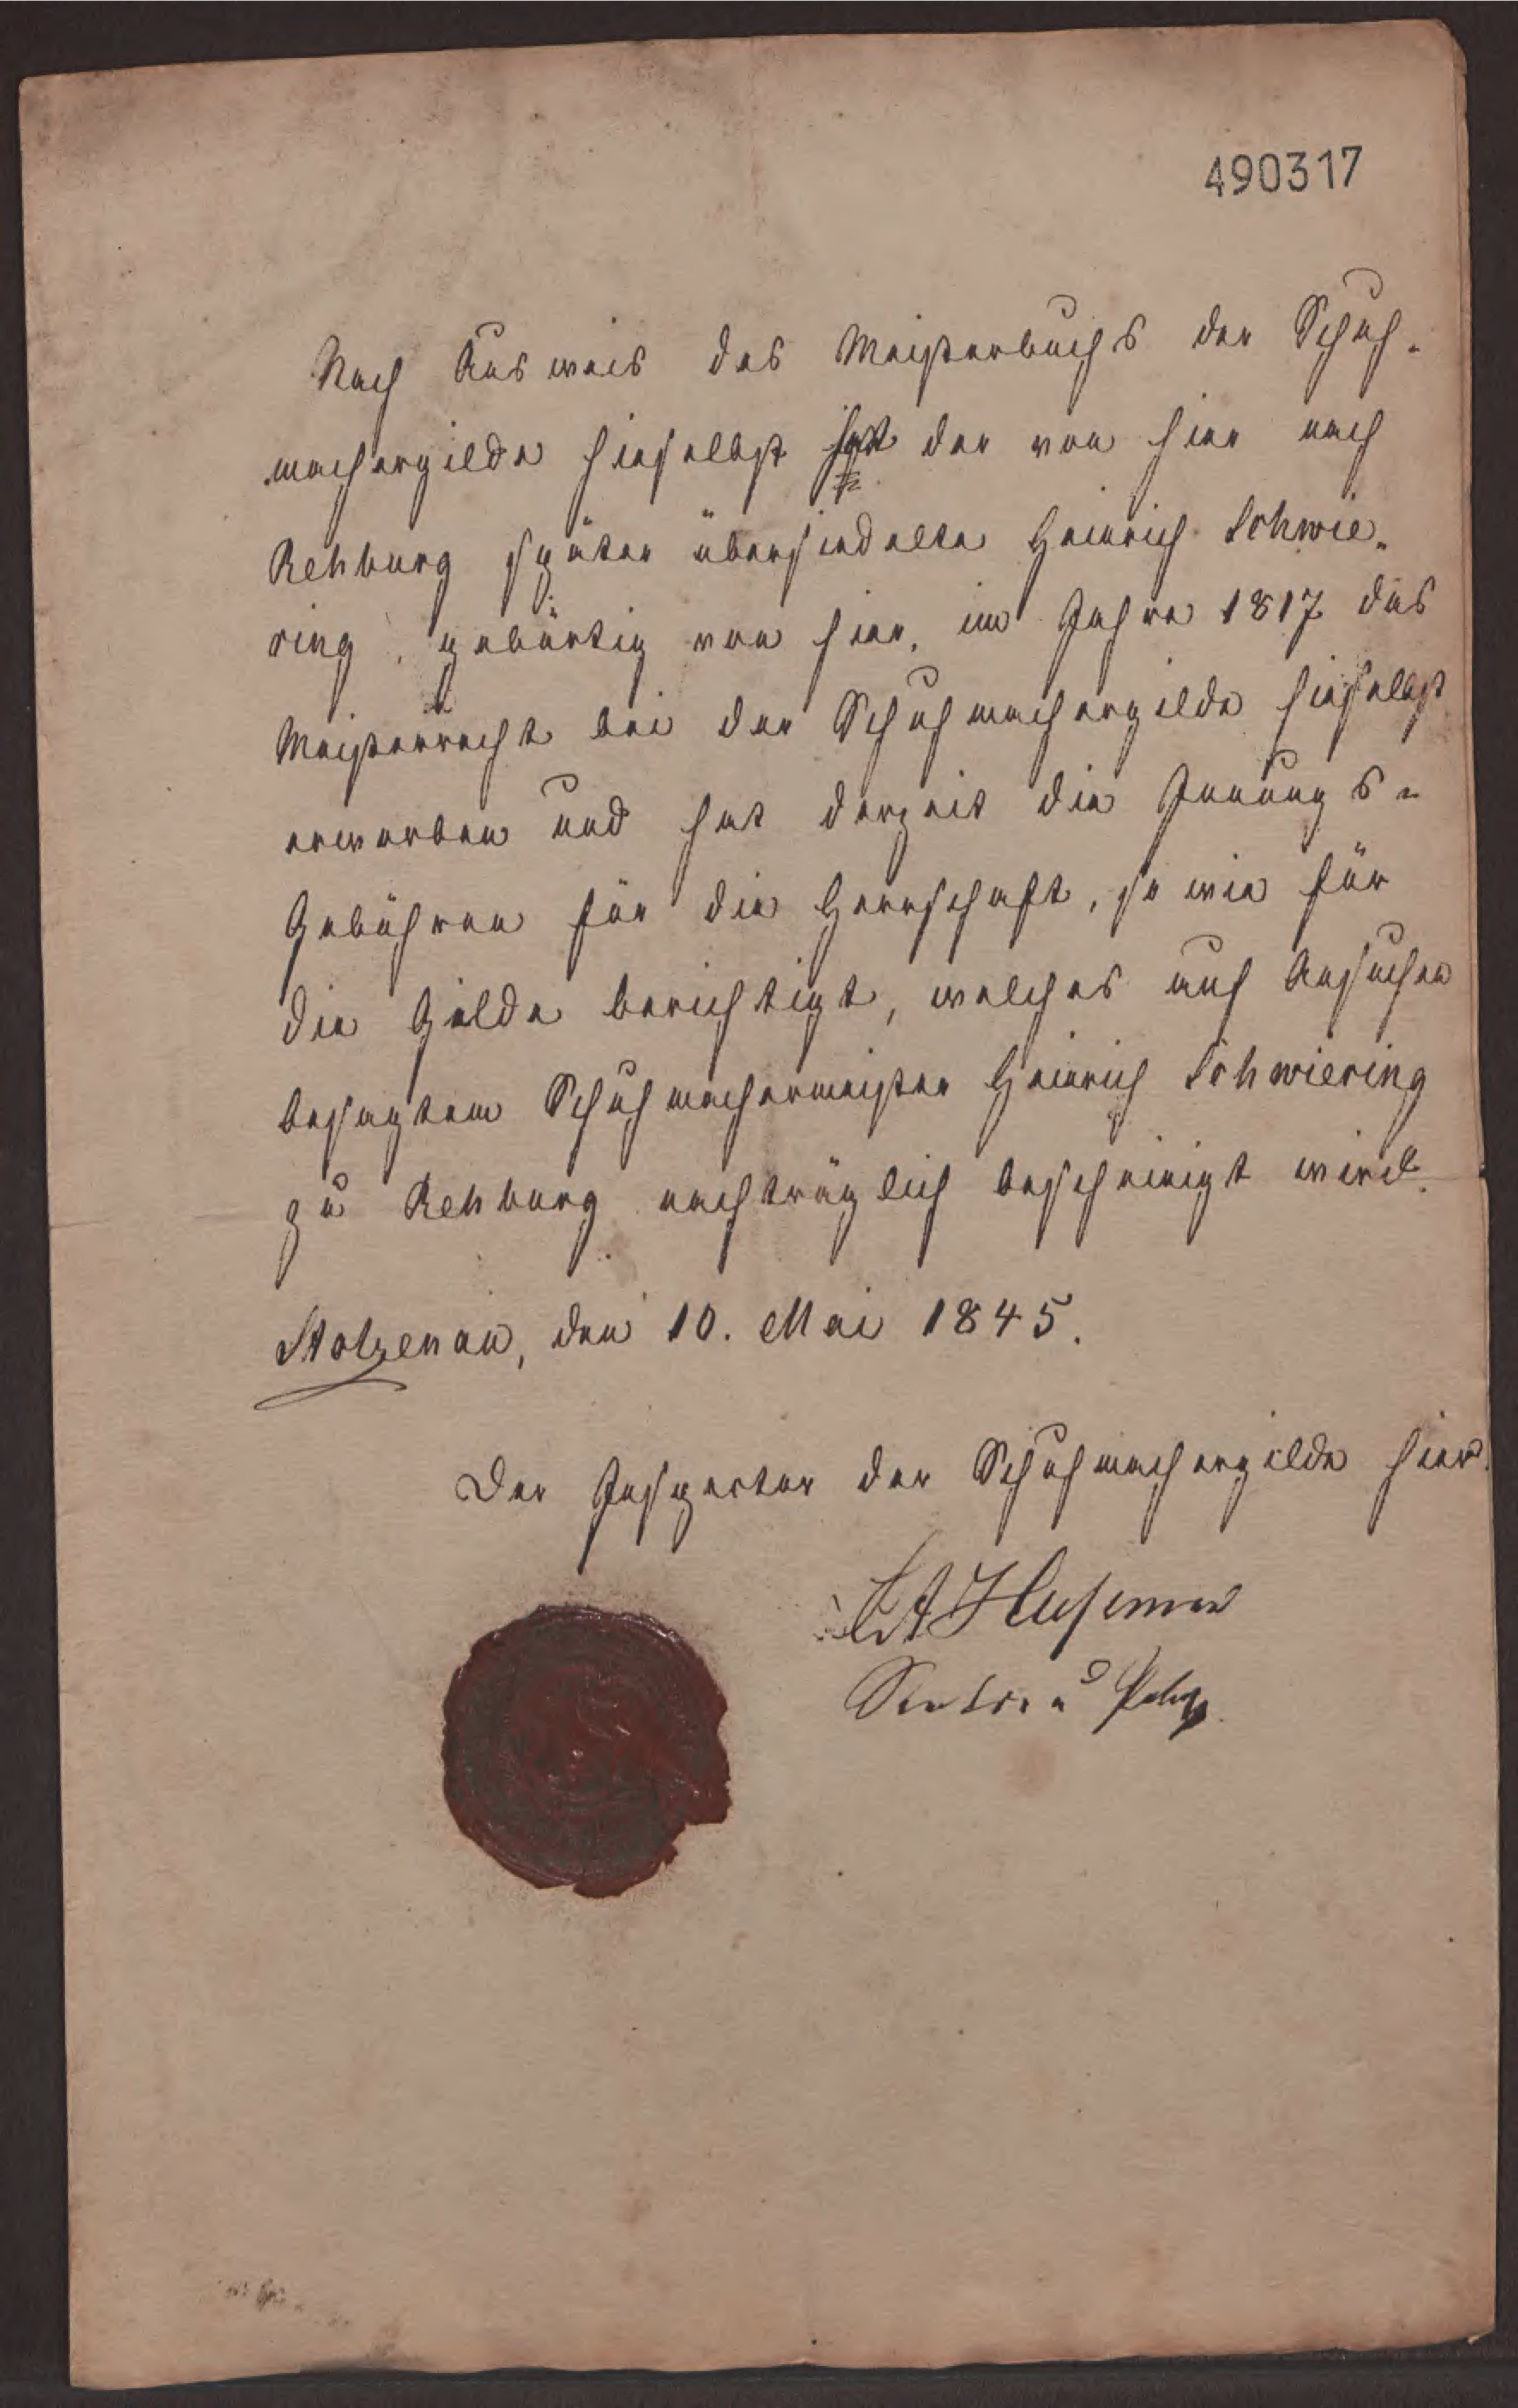 490317
Nach Ausweis des Meisterbuchs der Schuh-
machergilde hieselbst hat der von hier nach
Rehburg später übersiedelte Heinrich Schwie-
ring, gebürtig von hier, im Jahre 1817 das
Meisterrecht bei der Schuhmachergilde hieselbst
erworben und hat derzeit die Innungs-
Gebühren für die Herrschaft, so wie für
die Gilde berichtigt, welches auf Ansuchen
besagtem Schuhmachermeister Heinrich Schwiering
zu Rehburg nachträglich bescheinigt wird.
Stolzenau, den 10. Mai 1845.
Der Inspector der Schuhmachergilde hier.